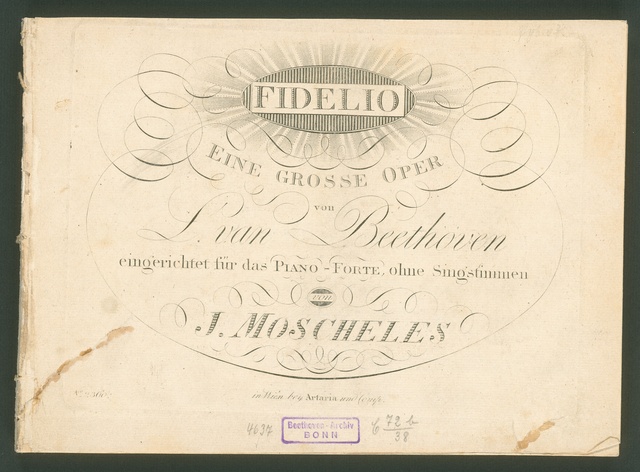 FIDELIO
EINE GROSSE OPER
von
L. van Beethoven
eingerichtet für das PIANO-FORTE, ohne Singstimmen
von
J. MOSCHELES
in Wien bey Artaria und Comp.
4637
Beethoven-Archiv
BONN
C 72 b
38